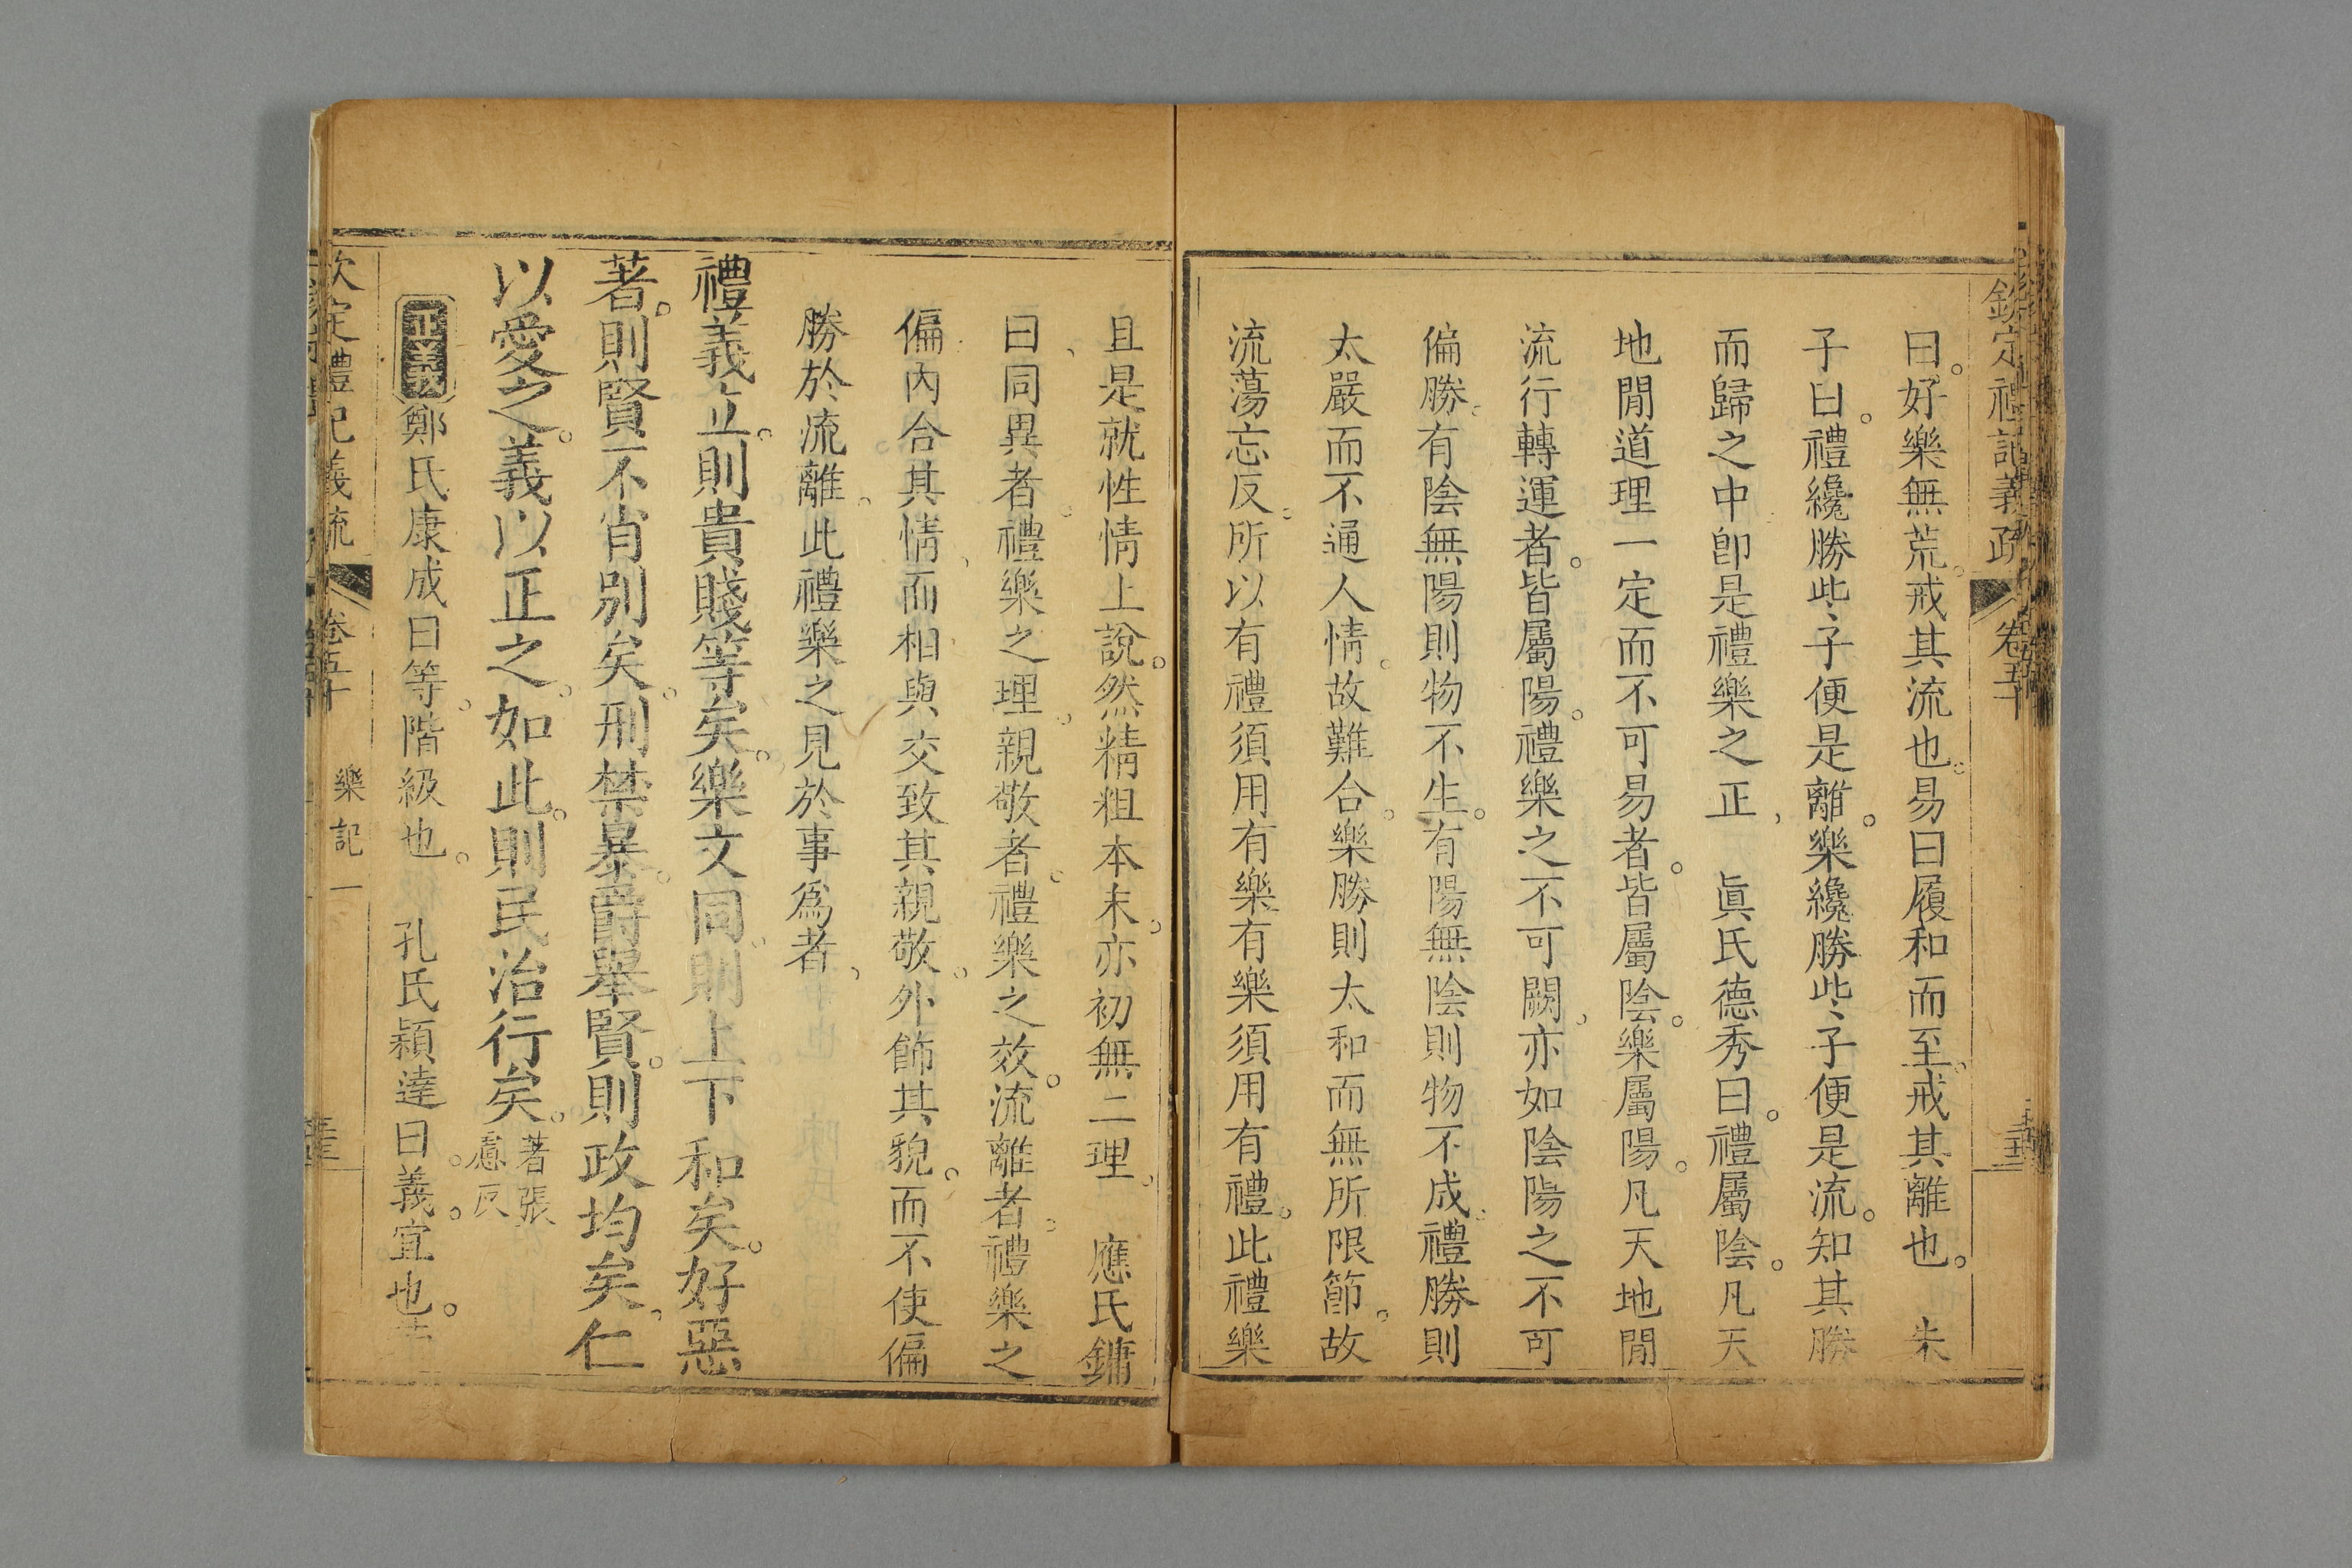 欽定禮記義疏 卷五十
曰。好樂無荒。戒其流也。易曰履和而至。戒其離也。 朱
子曰。禮纔勝些、子便是離。樂纔勝些、子便是流。知其勝
而歸之中卽是禮樂之正、 眞氏德秀曰。禮屬陰。凡天
地閒道理一定而不可易者。皆屬陰。樂屬陽。凡天地閒
流行轉運者。皆屬陽。禮樂之不可闕、亦如陰陽之不可
偏勝。有陰無陽則物不生。有陽無陰則物不成。禮勝則
太嚴而不通人情。故難合。樂勝則太和而無所限節。故
流蕩忘反。所以有禮須用有樂有樂須用有禮。此禮樂
且是就性情上說。然精粗本末。亦初無二理、 應氏鏞
曰、同異者。禮樂之理。親敬者。禮樂之效。流離者。禮樂之
偏內合其情、而相與交致其親敬。外飾其貌。而不使偏
勝於流離。此禮樂之見於事爲者、
禮義立。則貴賤等矣。樂文同。則上下和矣。好惡
著。則賢不肖別矣。刑禁暴。爵舉賢。則政均矣、仁
以愛之。義以正之。如此。則民治行矣。著張
慮反
正義鄭氏康成曰等。階級也。 孔氏穎達曰。義。宜也。
欽定禮記義疏 卷五十 樂記一